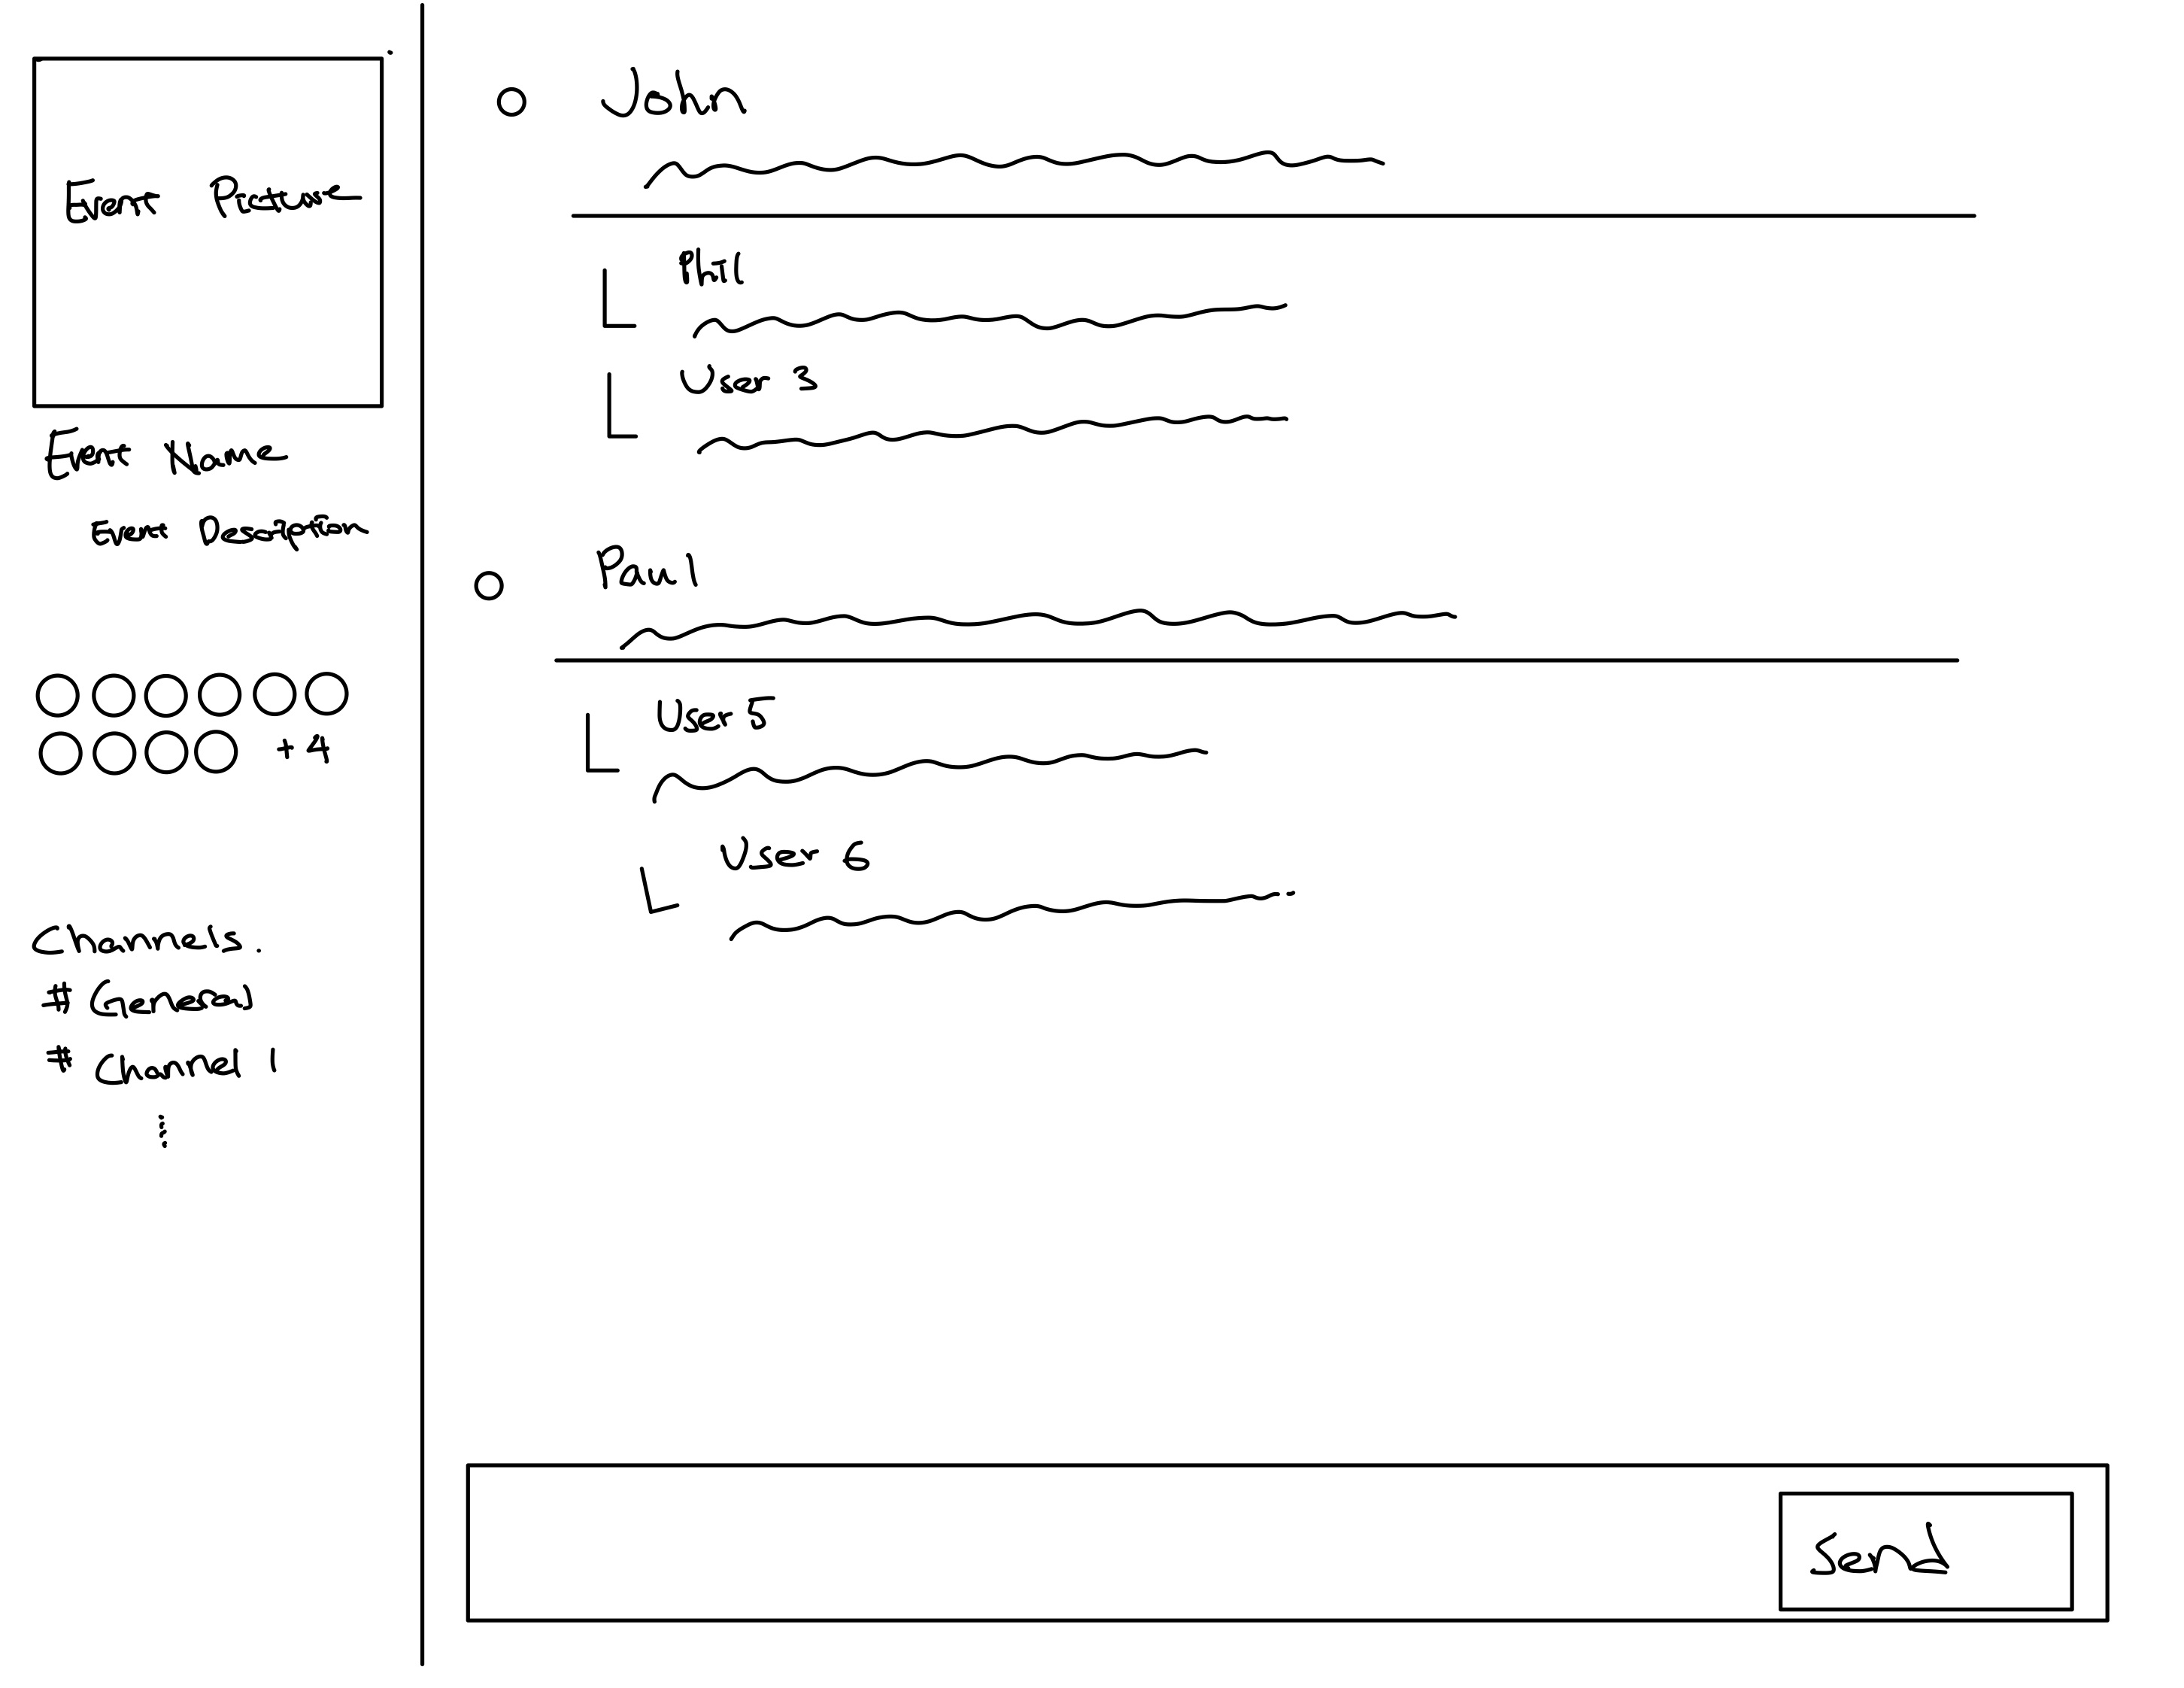 Event Picture
Event Name
Event Description
+4
Channels.
# General
# Channel 1
John
Phil
User 3
Paul
User 5
User 6
Send